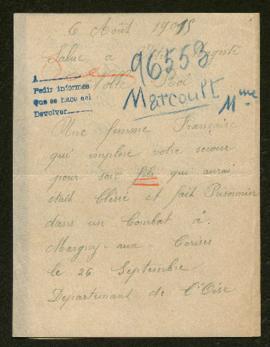 6 Août 1915
Salut à
96553
Votre
A
Pedir informes
Que se hace así
Devolver
Marcoult
Mme
Une femme Française
qui implore votre secour
pour son fils qui aurai
était Blessé et fait Prisonnier
dans un Combat à
Margny-aux-Cerises
le 26 Septembre
Departement de l'Oise